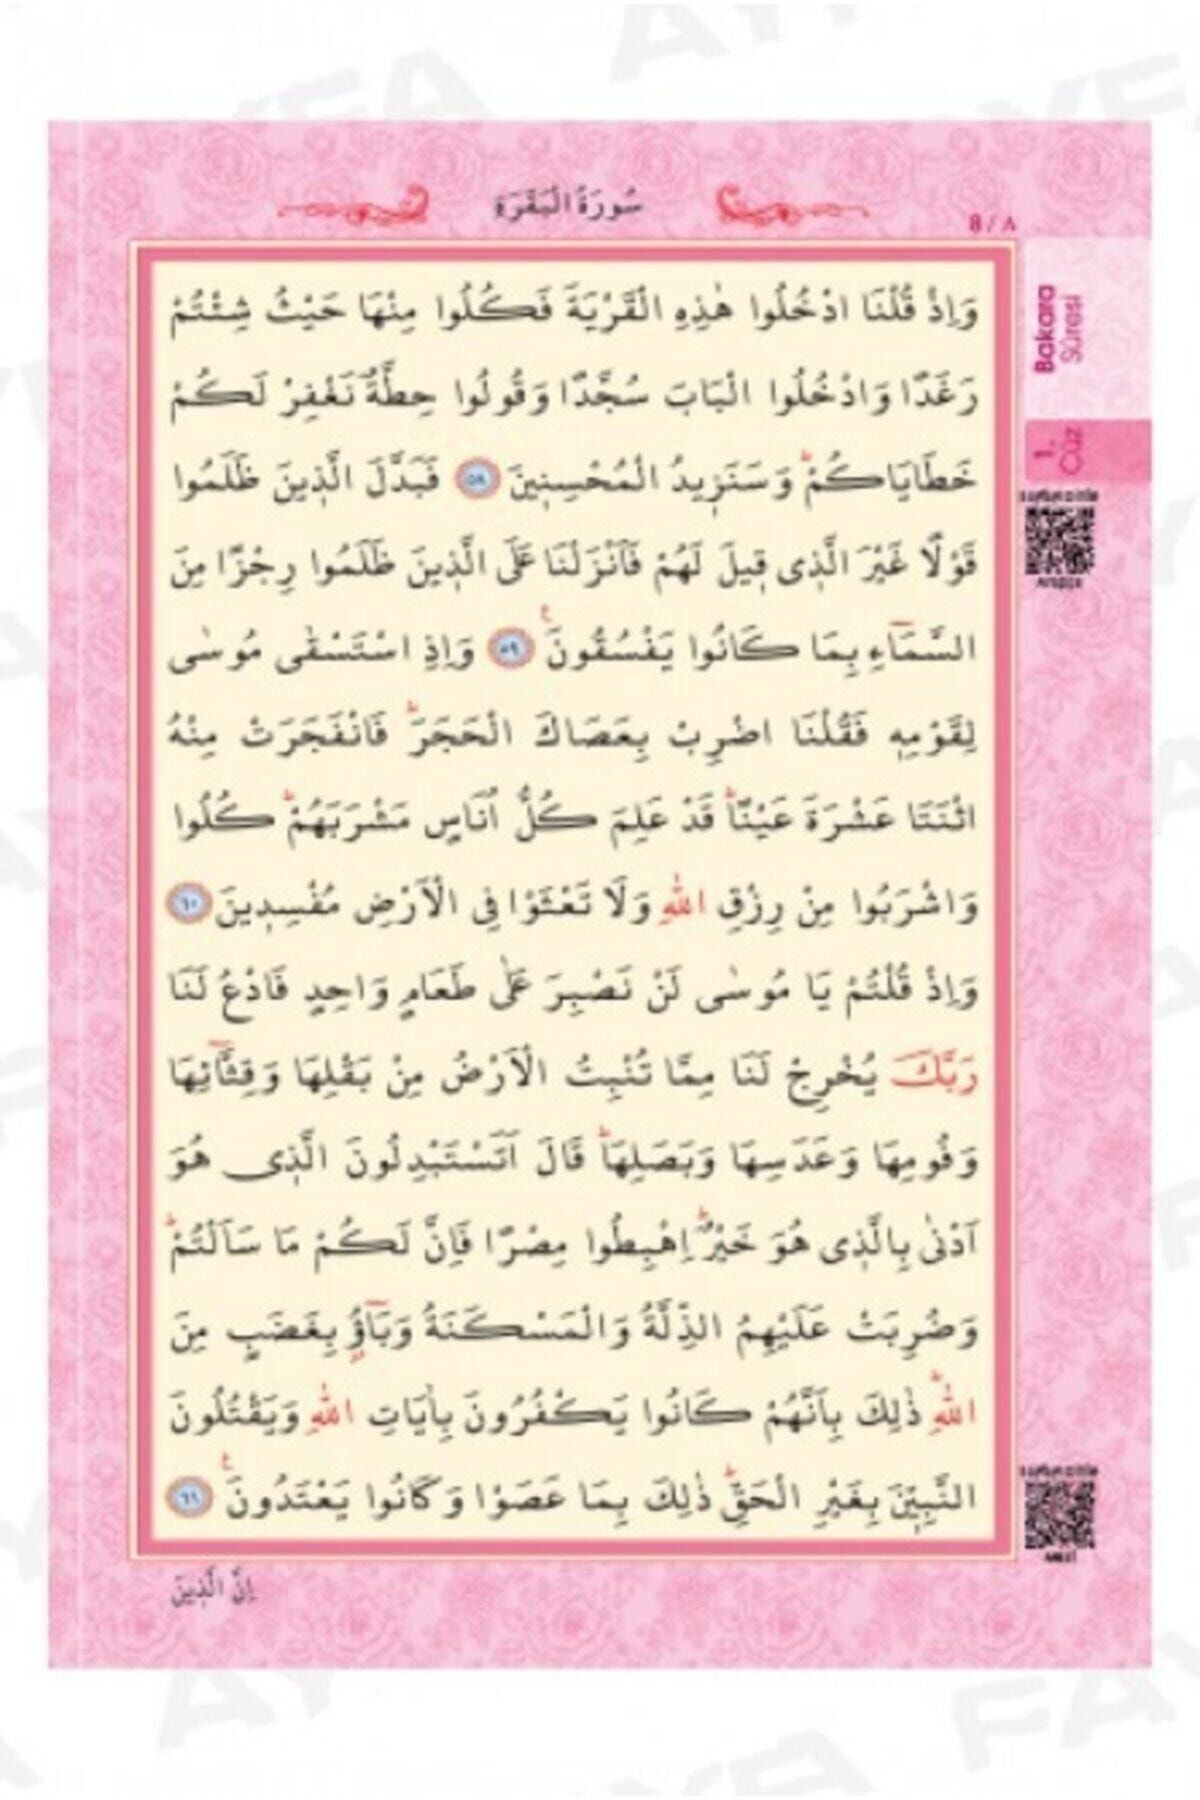 سُورَةُ الْبَقَرَةِ
8 / ٨
وَاِذْ قُلْنَا ادْخُلُوا هٰذِهِ الْقَرْيَةَ فَكُلُوا مِنْهَا حَيْثُ شِئْتُمْ
رَغَدًا وَادْخُلُوا الْبَابَ سُجَّدًا وَقُولُوا حِطَّةٌ نَغْفِرْ لَكُمْ
خَطَايَاكُمْۜ وَسَنَزٖيدُ الْمُحْسِنٖينَ ٥٨ فَبَدَّلَ الَّذٖينَ ظَلَمُوا
قَوْلًا غَيْرَ الَّذٖى قٖيلَ لَهُمْ فَاَنْزَلْنَا عَلَى الَّذٖينَ ظَلَمُوا رِجْزًا مِنَ
السَّمَٓاءِ بِمَا كَانُوا يَفْسُقُونَ ٥٩ وَاِذِ اسْتَسْقٰى مُوسٰى
لِقَوْمِهٖ فَقُلْنَا اضْرِبْ بِعَصَاكَ الْحَجَرَۜ فَانْفَجَرَتْ مِنْهُ
اثْنَتَا عَشْرَةَ عَيْنًاۜ قَدْ عَلِمَ كُلُّ اُنَاسٍ مَشْرَبَهُمْۜ كُلُوا
وَاشْرَبُوا مِنْ رِزْقِ اللّٰهِ وَلَا تَعْثَوْا فِى الْاَرْضِ مُفْسِدٖينَ ٦٠
وَاِذْ قُلْتُمْ يَا مُوسٰى لَنْ نَصْبِرَ عَلٰى طَعَامٍ وَاحِدٍ فَادْعُ لَنَا
رَبَّكَ يُخْرِجْ لَنَا مِمَّا تُنْبِتُ الْاَرْضُ مِنْ بَقْلِهَا وَقِثَّٓائِهَا
وَفُومِهَا وَعَدَسِهَا وَبَصَلِهَاۜ قَالَ اَتَسْتَبْدِلُونَ الَّذٖى هُوَ
اَدْنٰى بِالَّذٖى هُوَ خَيْرٌۜ اِهْبِطُوا مِصْرًا فَاِنَّ لَكُمْ مَا سَاَلْتُمْۜ
وَضُرِبَتْ عَلَيْهِمُ الذِّلَّةُ وَالْمَسْكَنَةُ وَبَٓاؤُ بِغَضَبٍ مِنَ
اللّٰهِۜ ذٰلِكَ بِاَنَّهُمْ كَانُوا يَكْفُرُونَ بِاٰيَاتِ اللّٰهِ وَيَقْتُلُونَ
النَّبِيّٖنَ بِغَيْرِ الْحَقِّۜ ذٰلِكَ بِمَا عَصَوْا وَكَانُوا يَعْتَدُونَ ٦١
اِنَّ الَّذٖينَ
Bakara
Sûresi
1.
Cüz
AYFA